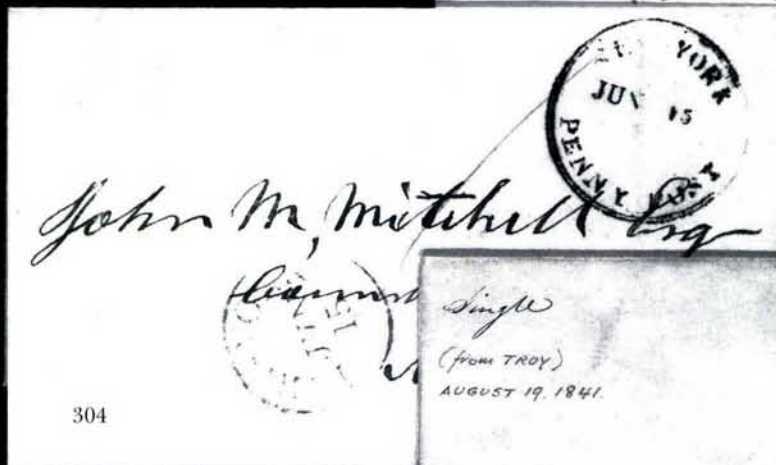 YORK
JUN 15
PENNY
John M, Mitchell Esq
Single
(from TROY)
AUGUST 19. 1841.
304